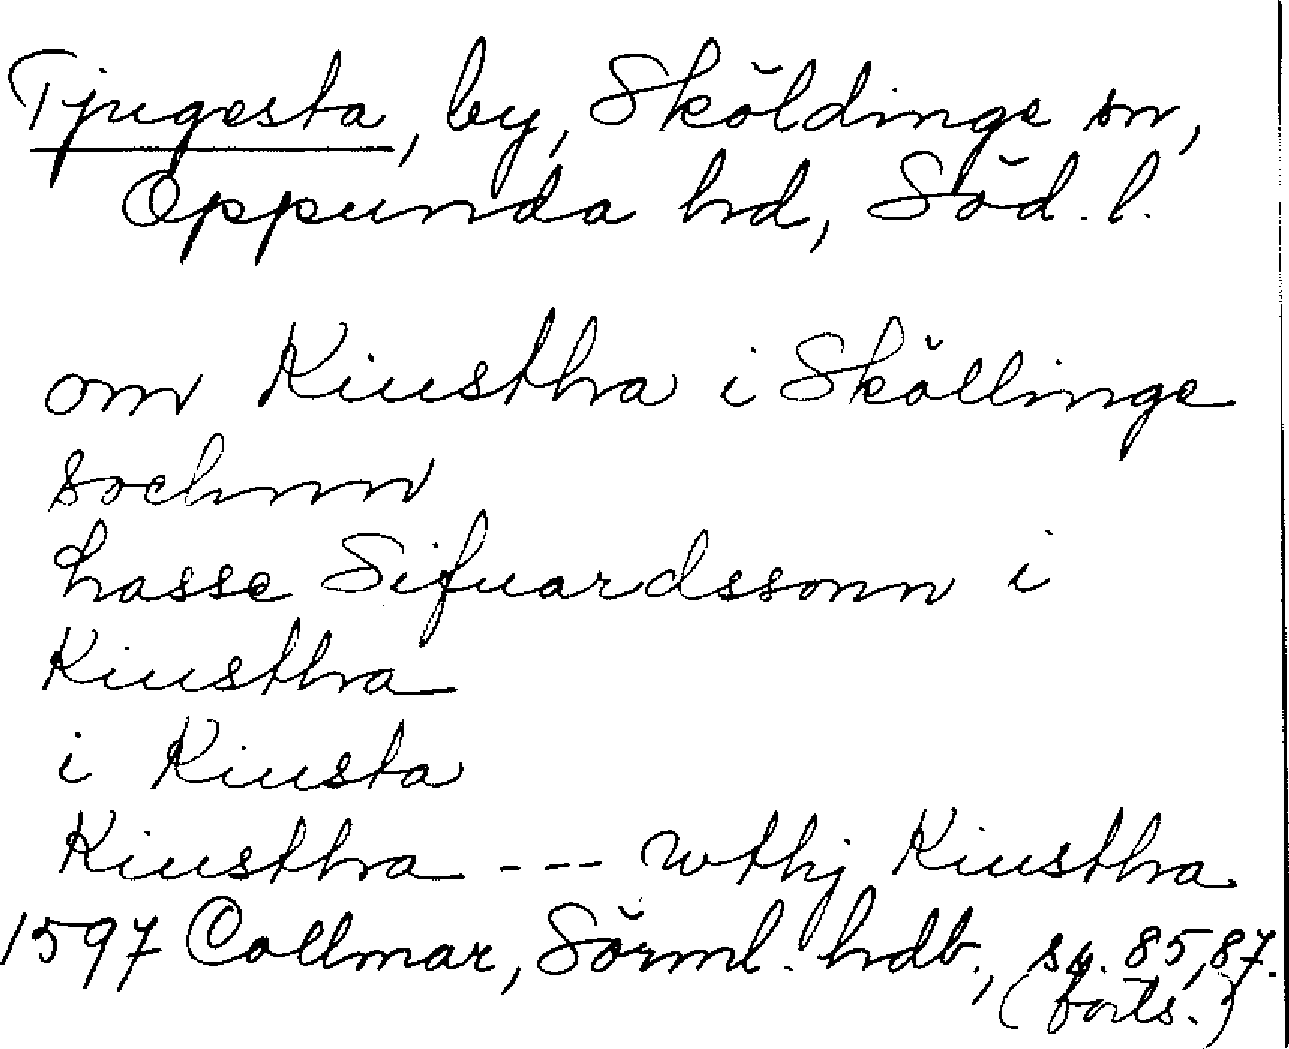 Tjugesta, by, Sköldinge sn,
Oppunda hd, Söd. l.
om Kiustha i Sköllinge
sochnn
hasse Sifuardssonn i
Kiustha
i Kiusta
Kiustha --- wthj Kiustha
1597 Collmar, Sörml. hdb., sp. 85, 87.
(forts.)